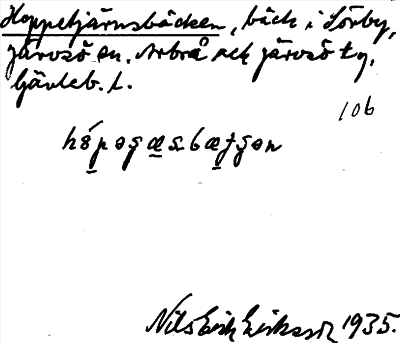 Hoppetjärnsbäcken, bäck i Sörby,
Järvsö sn. Arbrå och Järvsö tg,
Gävleb. l.
106
Nils Erik Eriksson 1935.